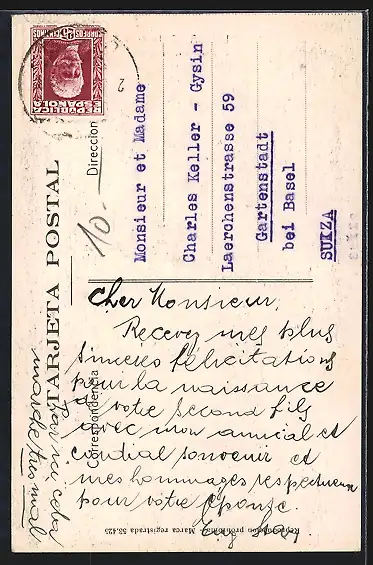 REPUBLICA
ESPAÑOLA
CORREOS
TARJETA POSTAL
Dirección
Correspondencia
10.-
Monsieur et Madame
Charles Keller - Gysin
Laerchenstrasse 59
Gartenstadt
bei Basel
SUIZA
Cher Monsieur,
Recevez mes plus
sincères félicitations
pour la naissance
de votre second fils
avec mon amical et
cordial souvenir et
mes hommages respectueux
pour votre épouse.
Par ici, cela
marche très mal
Reproducción prohibida - Marca registrada 55.425